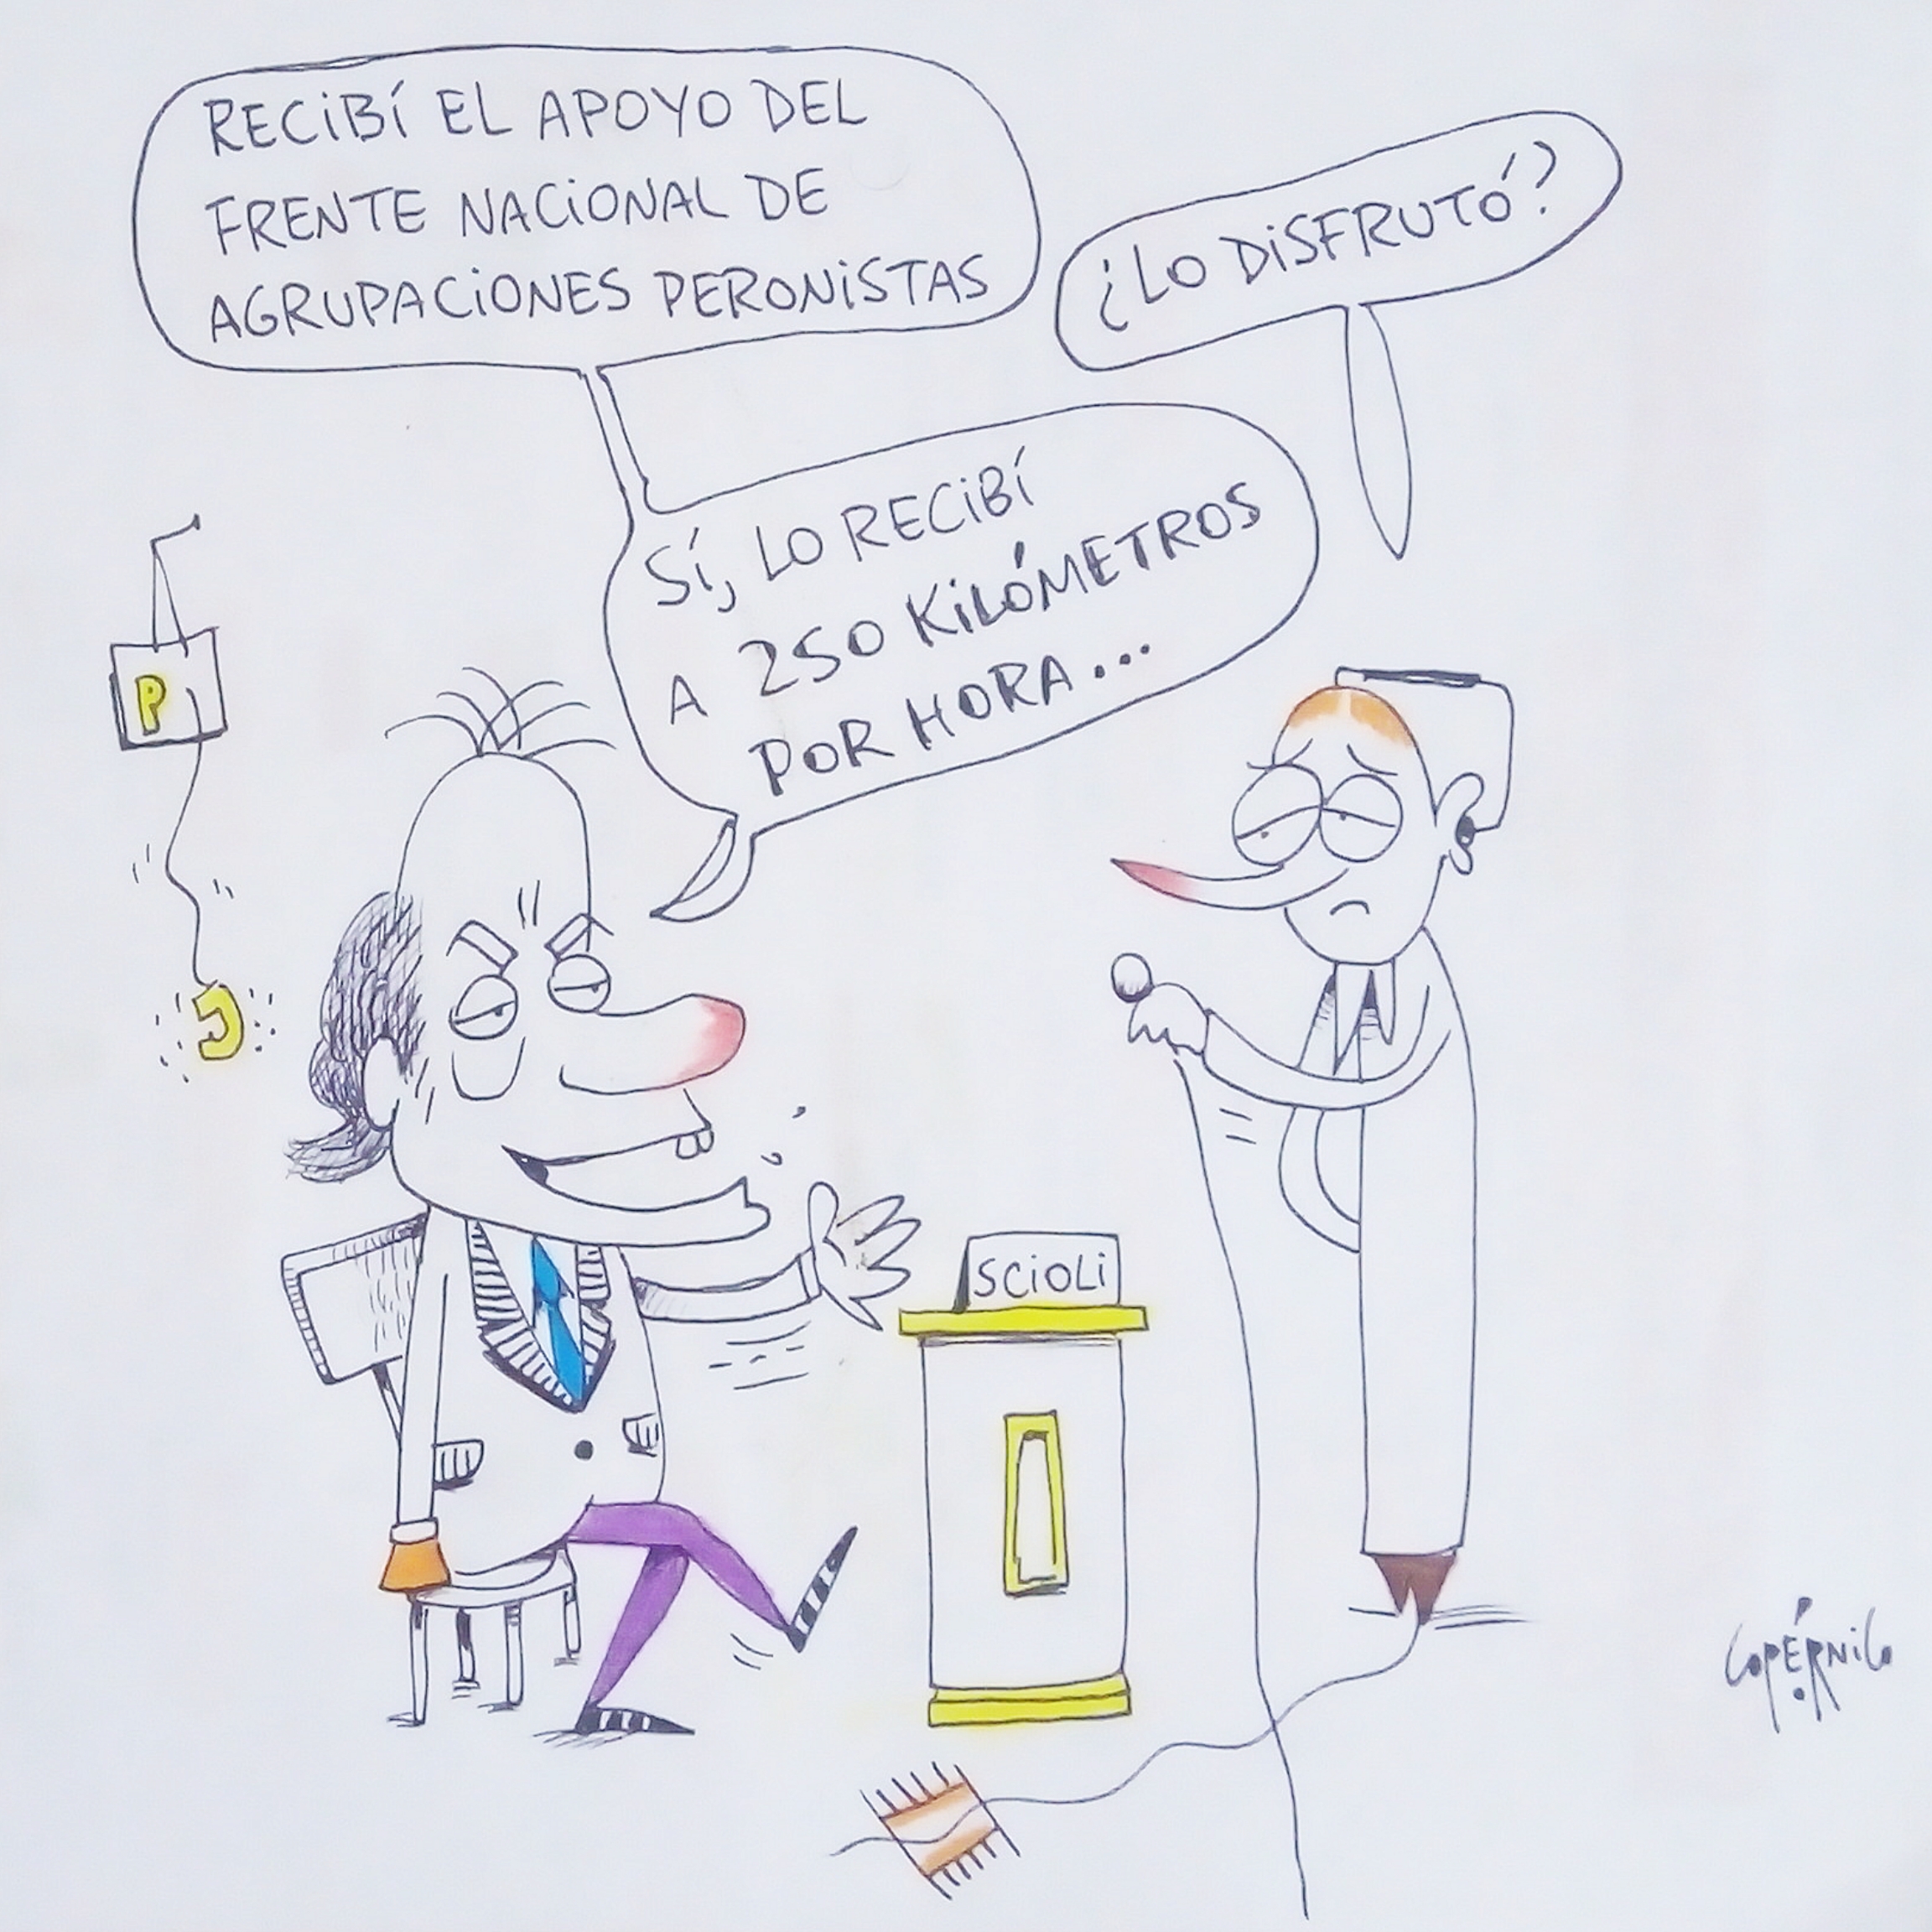 RECIBÍ EL APOYO DEL
FRENTE NACIONAL DE
AGRUPACIONES PERONISTAS
¿LO DISFRUTÓ?
SÍ, LO RECIBÍ
A 250 KILÓMETROS
POR HORA...
P
J
SCIOLI
COPÉRNICO